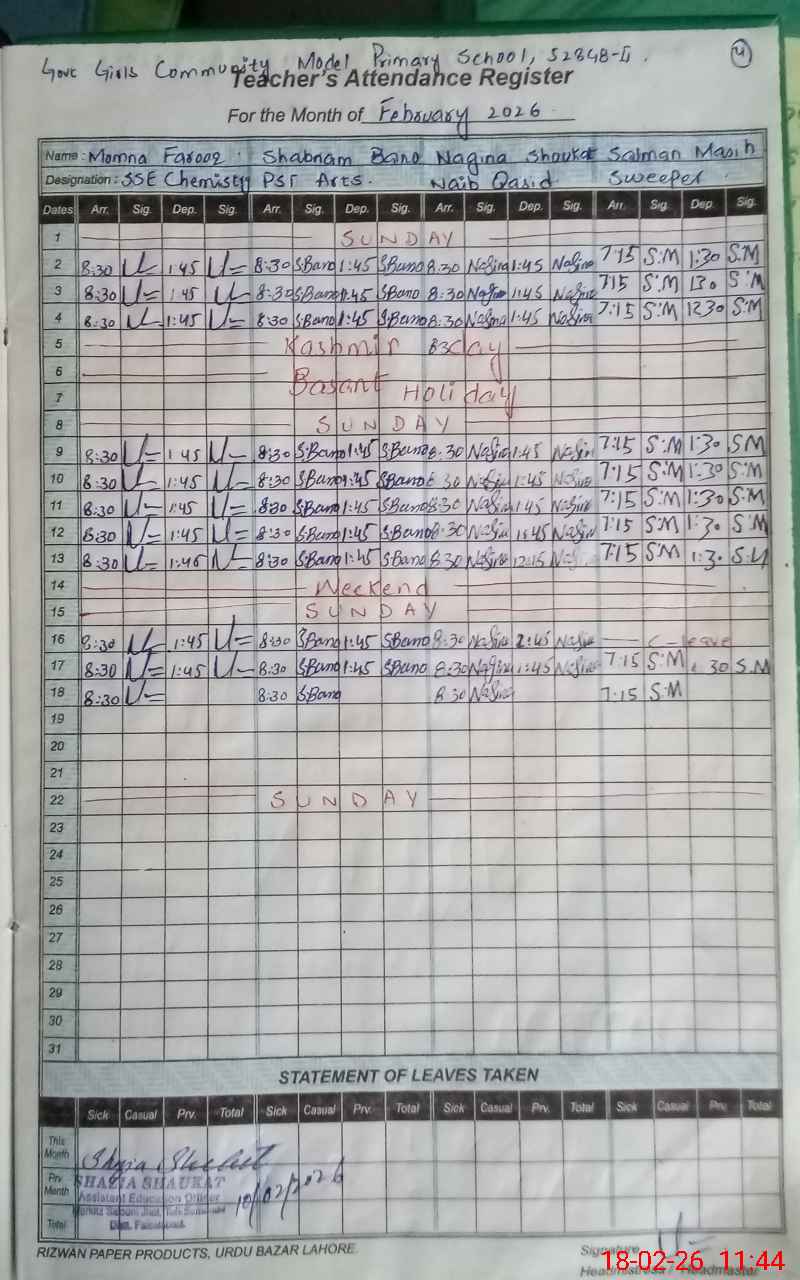 Govt Girls Community Model Primary School, 523GB-II.
4
Teacher's Attendance Register
For the Month of February 2026
Name: Momna Farooq Shabnam Bano Nagina Shoukat Salman Masih
Designation: SSE Chemistry PST Arts. Naib Qasid Sweeper
Dates Arr. Sig. Dep. Sig. Arr. Sig. Dep. Sig. Arr. Sig. Dep. Sig. Arr. Sig. Dep. Sig.
1 SUNDAY
2 8:30 1:45 8:30 SBano 1:45 SBano 8:30 Nagina 1:45 Nagina 7:15 S.M 1:30 S.M
3 8:30 1:45 8:30 SBano 1:45 SBano 8:30 Nagina 1:45 Nagina 7:15 S.M 1:30 S.M
4 8:30 1:45 8:30 SBano 1:45 SBano 8:30 Nagina 1:45 Nagina 7:15 S.M 12:30 S.M
5 Kashmir day
6
7 Basant Holiday
8 SUNDAY
9 8:30 1:45 8:30 S.Bano 1:45 SBano 8:30 Nagina 1:45 Nagina 7:15 S.M 1:30 SM
10 8:30 1:45 8:30 SBano 1:45 SBano 8:30 Nagina 1:45 Nagina 7:15 S.M 1:30 S.M
11 8:30 1:45 8:30 SBano 1:45 SBano 8:30 Nagina 1:45 Nagina 7:15 S.M 1:30 S.M
12 8:30 1:45 8:30 SBano 1:45 SBano 8:30 Nagina 1:45 Nagina 7:15 S.M 1:30 S.M
13 8:30 1:45 8:30 SBano 1:45 SBano 8:30 Nagina 12:15 7:15 S.M 1:30 S.M
14 Weekend
15 SUNDAY
16 8:30 1:45 8:30 SBano 1:45 SBano 8:30 Nagina 1:45 Nagina C-leave
17 8:30 1:45 8:30 SBano 1:45 SBano 8:30 Nagina 1:45 Nagina 7:15 S.M 1:30 S.M
18 8:30 8:30 SBano 8:30 Nagina 7:15 S.M
19
20
21
22 SUNDAY
23
24
25
26
27
28
29
30
31
STATEMENT OF LEAVES TAKEN
Sick Casual Prv. Total Sick Casual Prv. Total Sick Casual Prv. Total Sick Casual Prv. Total
This Month
Prv. Month
Total
Shazia Shaukat
SHAZIA SHAUKAT
Assistant Education Officer
10/02/2026
RIZWAN PAPER PRODUCTS, URDU BAZAR LAHORE.
Signature
Headmistress / Headmaster
18-02-26 11:44